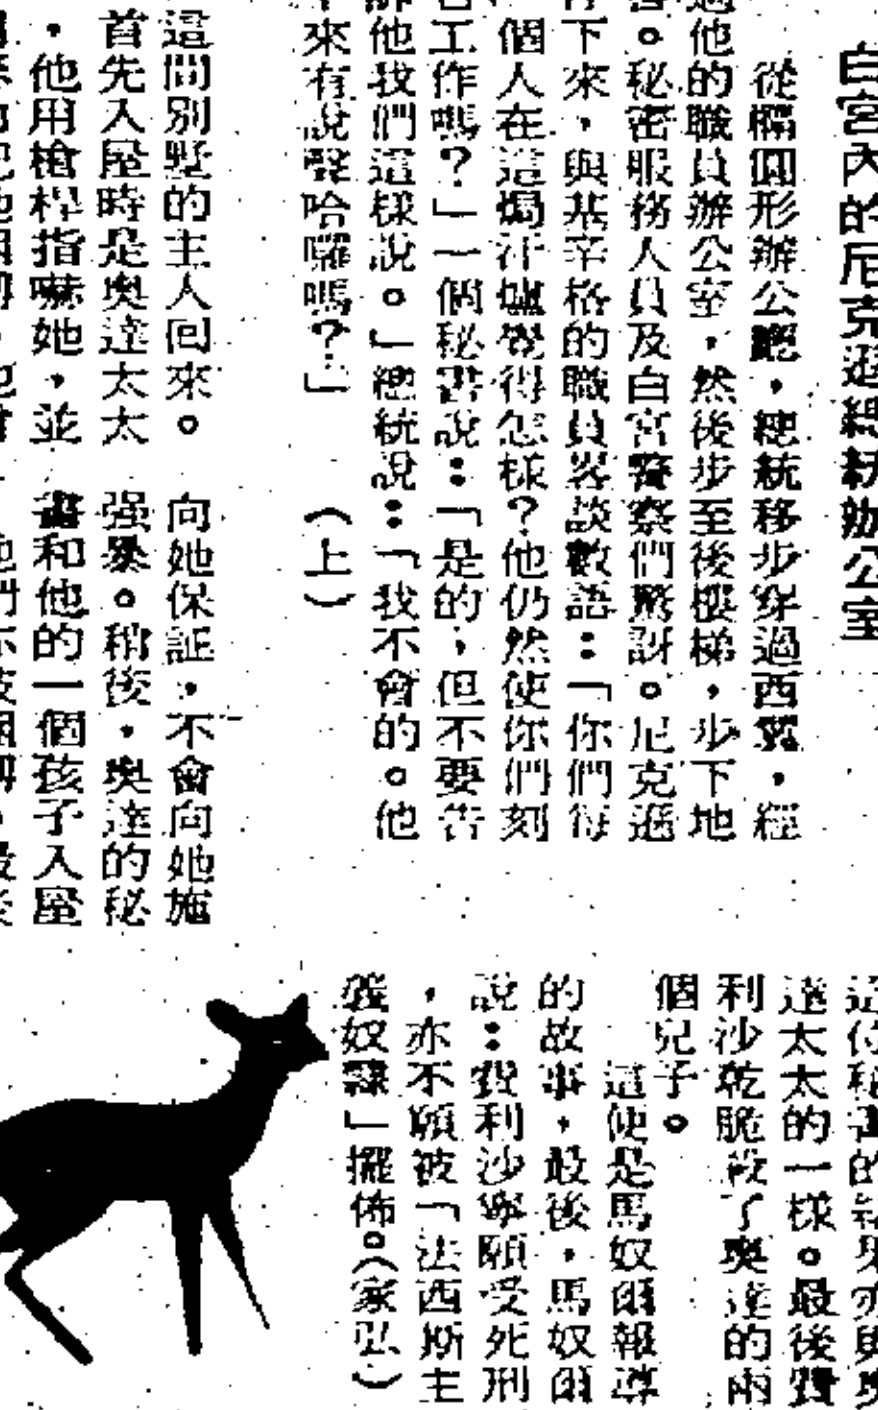 白宮內的尼克遜總統辦公室
從橢圓形辦公廳，總統移步穿過西翼，經
過他的職員辦公室，然後步至後樓梯，步下地
。秘密服務人員及白宮警察們驚訝。尼克遜
下來，與基辛格的職員畧談數語：「你們每
個人在這焗汗爐覺得怎樣？他仍然使你們刻
工作嗎？」一個秘書說：「是的，但不要告
訴他我們這樣說。」總統說：「我不會的。他
來有說聲哈囉嗎？」　（上）
這間別墅的主人回來。
首先入屋時是奧達太太
，他用槍桿指嚇她，並
向她保証，不會向她施
强暴。稍後，奧達的秘
書和他的一個孩子入屋
這位秘書的結果亦與奧
達太太的一樣。最後費
利沙乾脆殺了奧達的兩
個兒子。
這便是馬奴爾報導
的故事，最後，馬奴爾
說：費利沙寧願受死刑
，亦不願被「法西斯主
義奴隸」擺佈。（家弘）